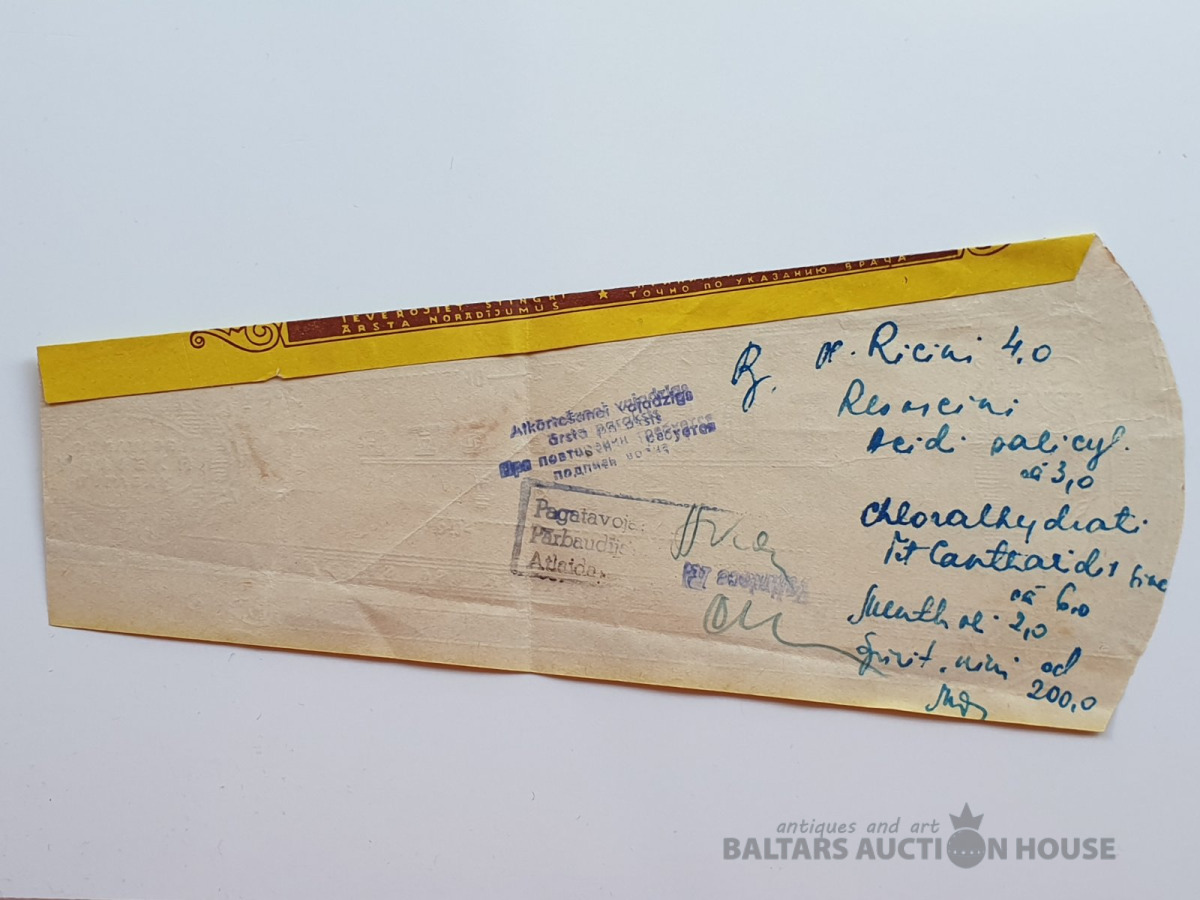 IEVĒROJIET STINGRI
ĀRSTA NORĀDĪJUMUS
ТОЧНО ПО УКАЗАНИЮ ВРАЧА
Atkārtošanai vajadzīgs
ārsta paraksts
При повторении требуется
подпись
Pagatavoja:
Pārbaudīja
Atlaida
Rp. Ol. Ricini 4,0
Resorcini
Acidi salicyl.
aa 3,0
Chloralhydrati
T-t Cantharidis
aa 6,0
Mentholi 2,0
Spirit. vini ad
200,0
antiques and art
BALTARS AUCTION HOUSE